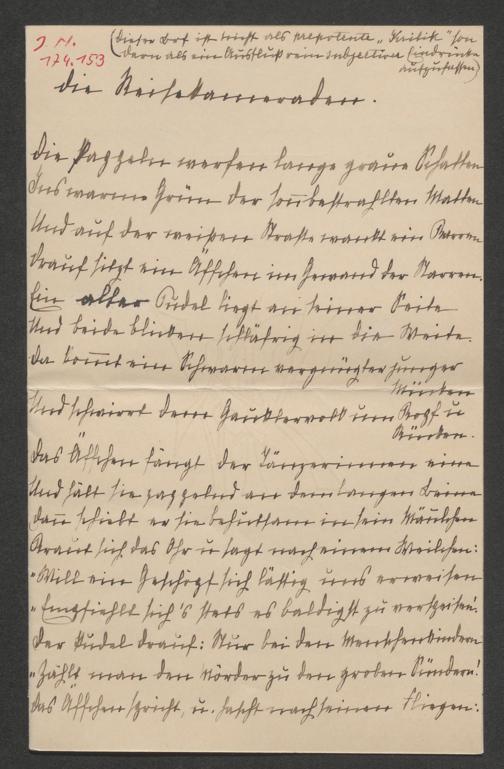 J. N.
174.153
(Dieser Brief ist nicht als prepotente „Kritik" son
dern als ein Ausfluß rein subjectiver Eindrücke
aufzufassen)
Die Reisekameraden.
Die Pappeln werfen lange graue Schatten
Ins warme Grün der sonnbestrahlten Matten
Und auf der weißen Straße wankt ein Karren
Drauf sitzt ein Äffchen im Gewand der Narren.
Ein alter Pudel liegt an seiner Seite
Und beide blicken schläfrig in die Weite.
Da kommt ein Schwarm vergnügter junger
Mücken
Und schwirrt dem Gauklervolk um Kopf u
Rücken.
Das Äffchen fängt der Tänzerinnen eine
Und hält sie zappelnd an dem langen Beine
Dann schiebt er sie behutsam in sein Mäulchen
Kraut sich das Ohr u sagt nach einem Weilchen:
„Will ein Geschöpf sich lästig uns erweisen
„Empfiehlt sich's stets es baldigst zu verspeisen".
Der Pudel drauf: Nur bei den Menschenkindern
„Zählt man den Mörder zu den groben Sündern".
Das Äffchen spricht, u. hascht nach seinen Fliegen: